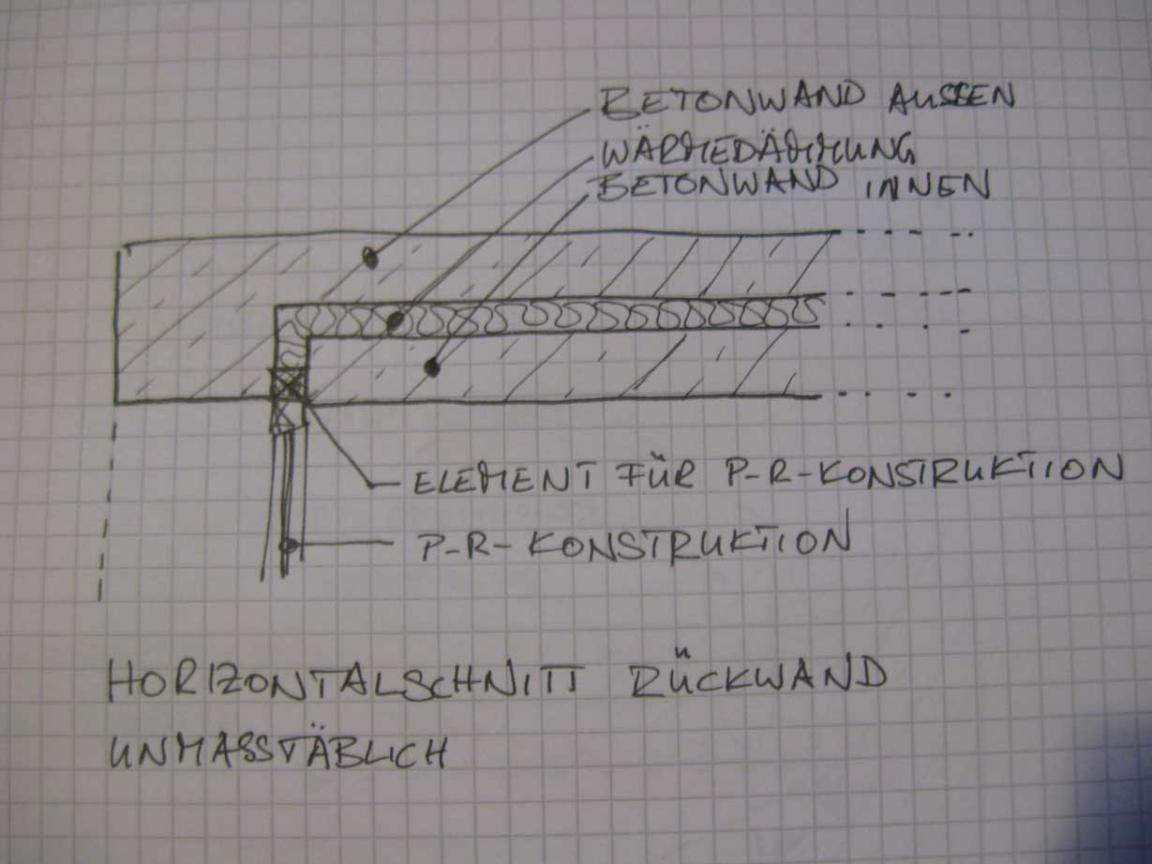 BETONWAND AUSSEN
WÄRMEDÄMMUNG
BETONWAND INNEN
ELEMENT FÜR P-R-KONSTRUKTION
P-R-KONSTRUKTION
HORIZONTALSCHNITT RÜCKWAND
UNMASSTÄBLICH